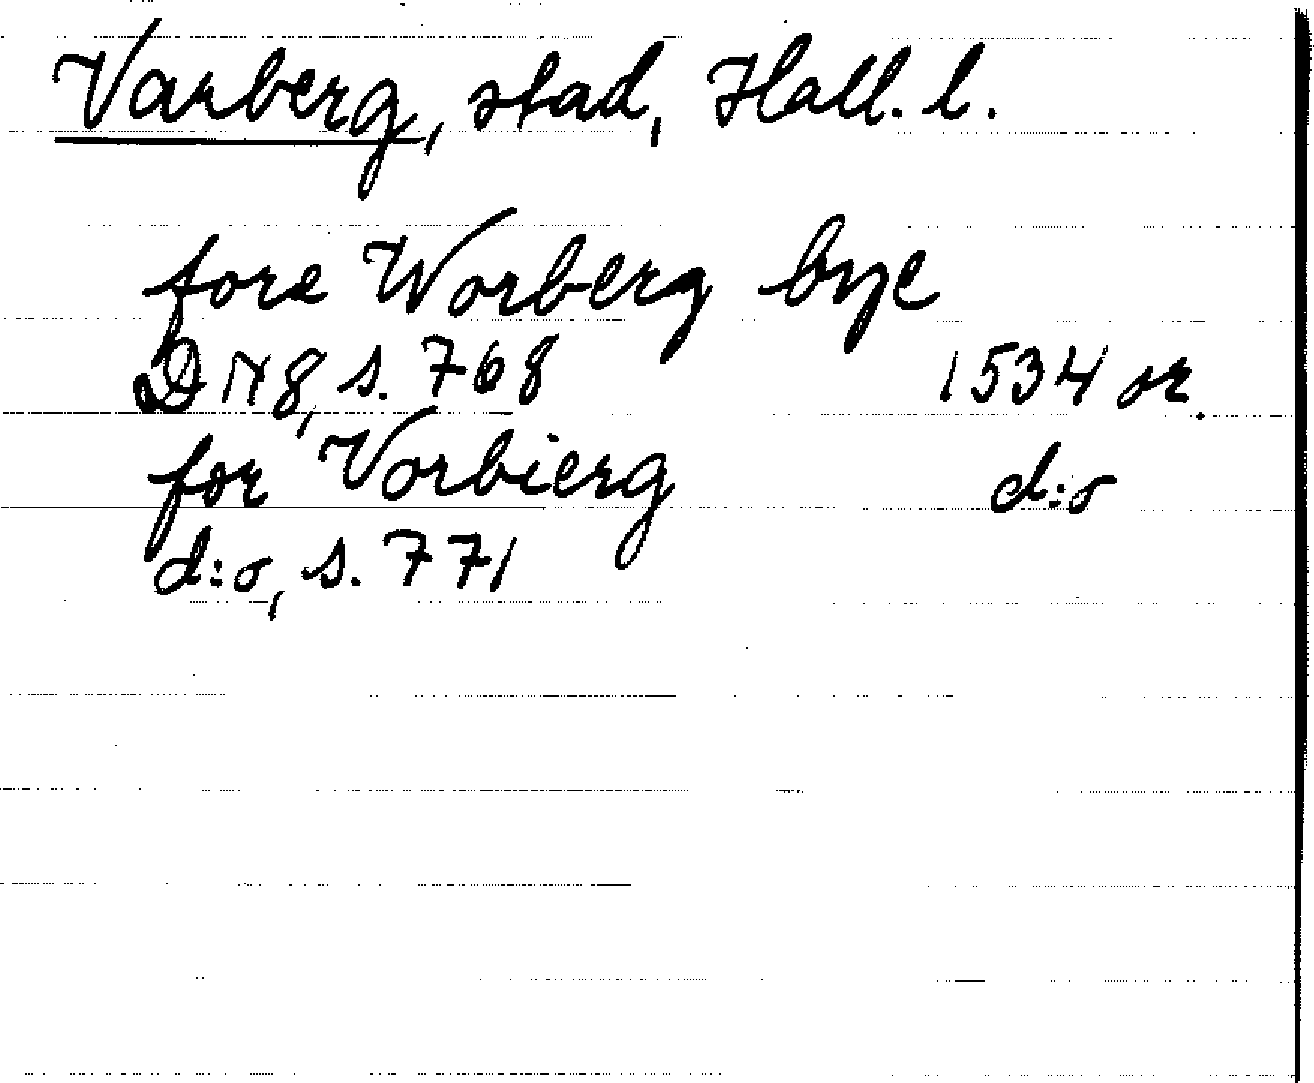 Varberg, stad, Hall. l.
fore Worberg bye
DN 8, s. 768 1534 or.
for Vorbierg d:o
d:o, s. 771